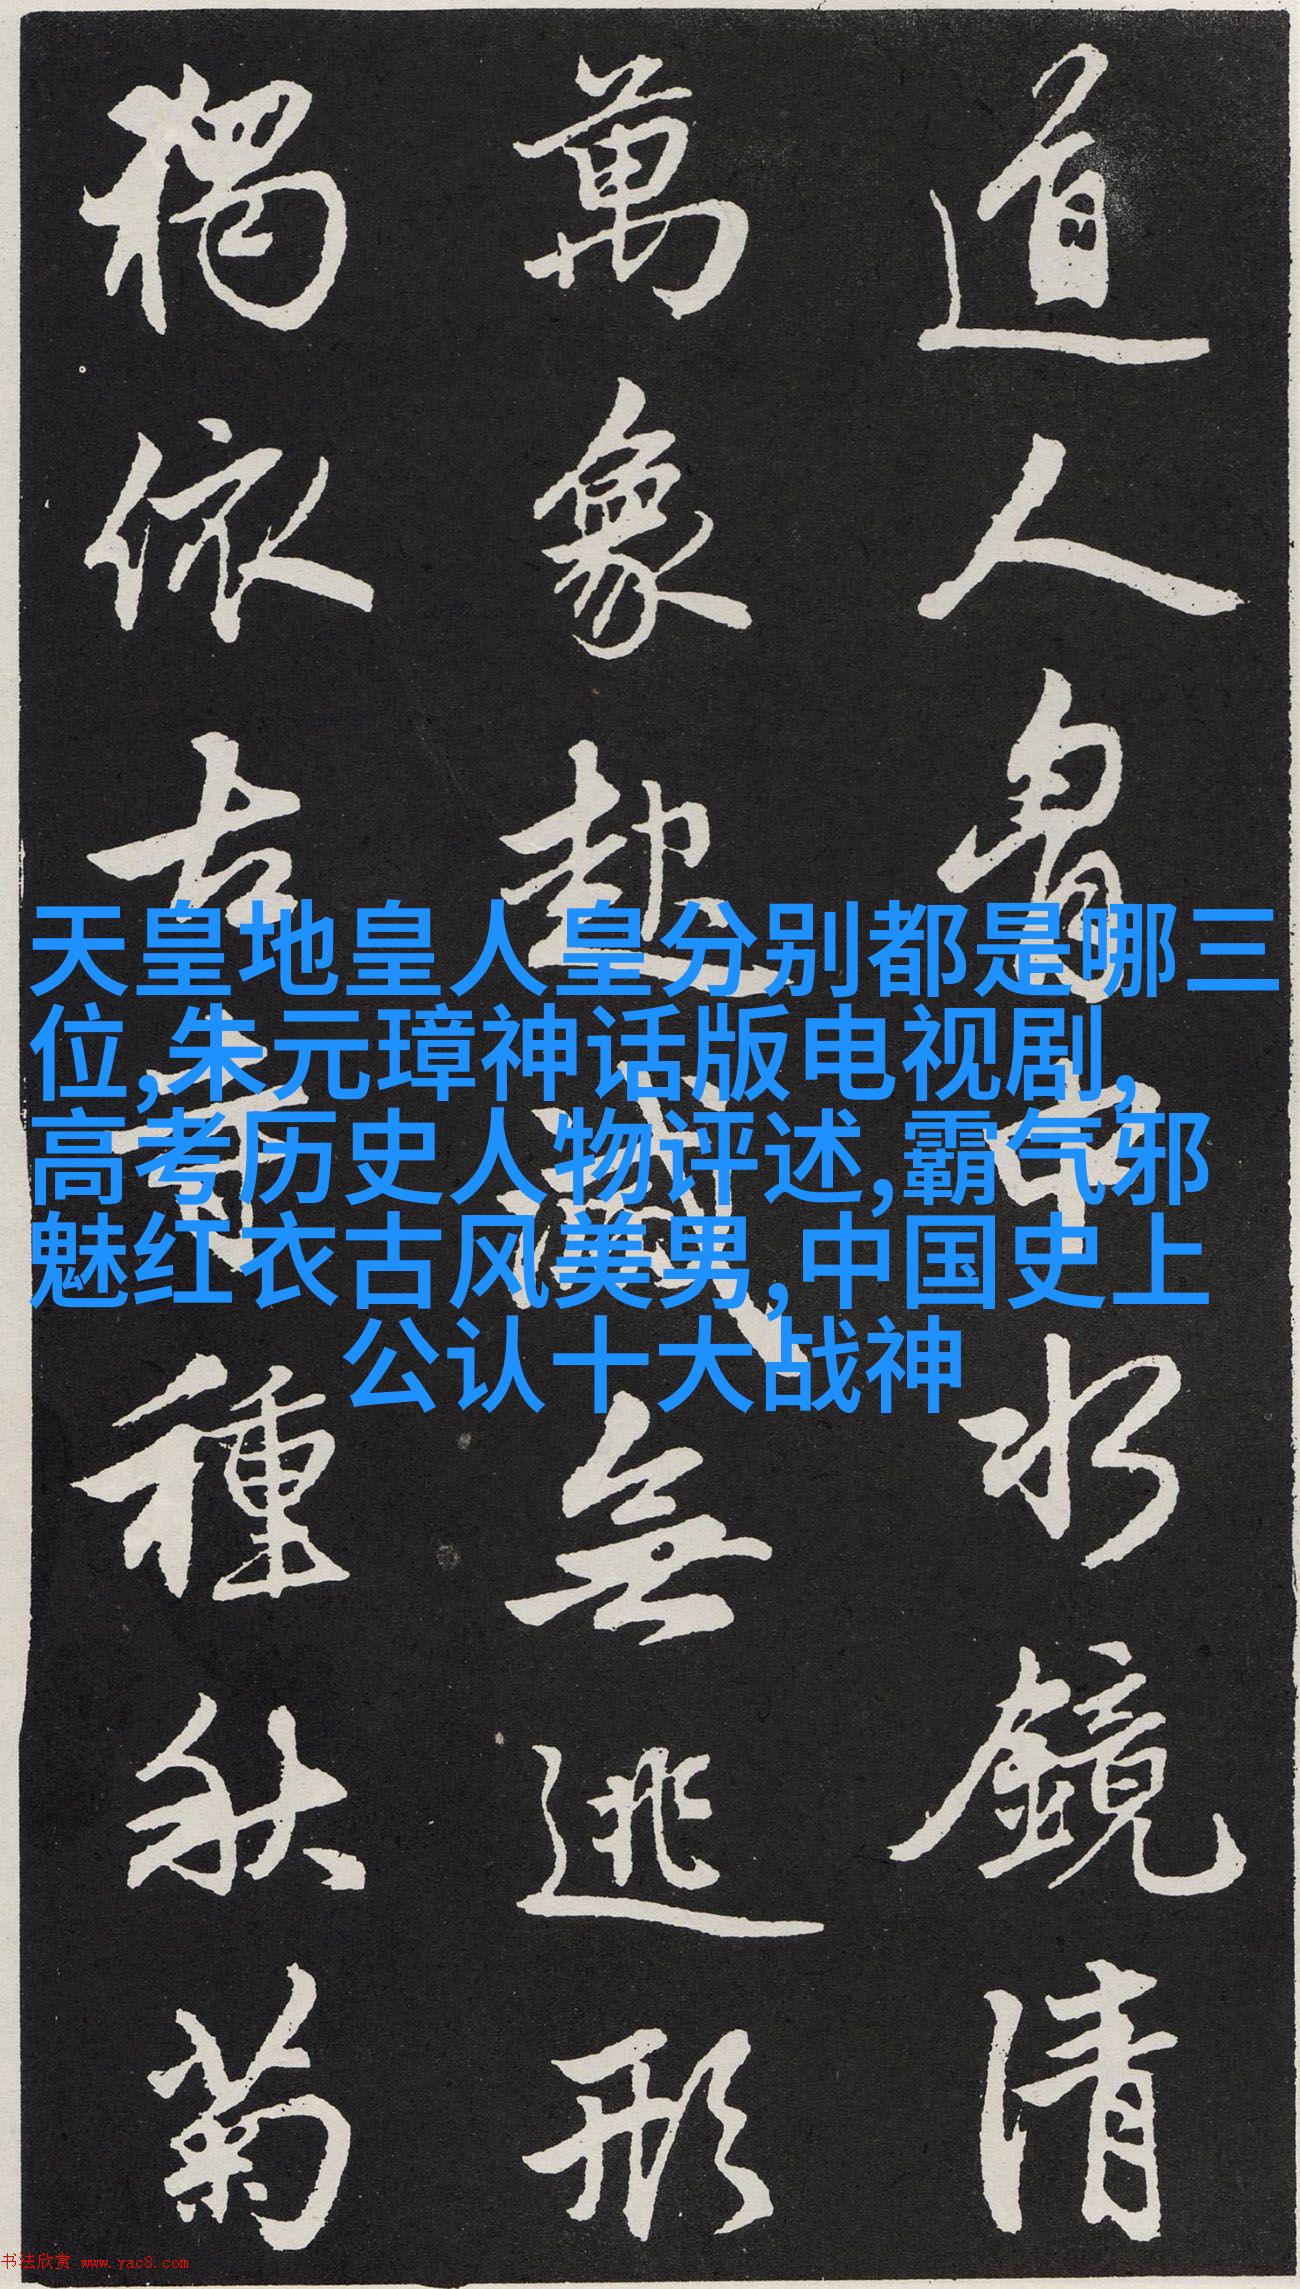 道人胷中水鏡清
萬象起滅無逃形
獨依古寺種秋菊
天皇地皇人皇分别都是哪三
位,朱元璋神话版电视剧,
高考历史人物评述,霸气邪
魅红衣古风美男,中国史上
公认十大战神
书法欣赏 www.yac8.com